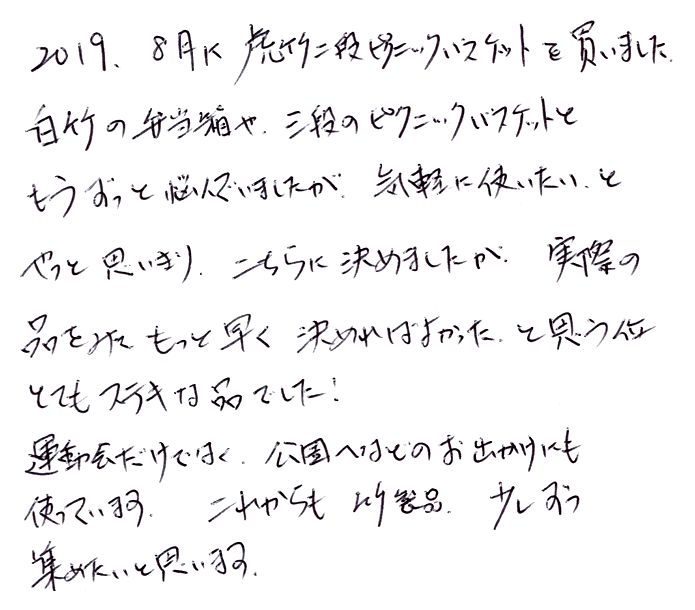 2019. 8月に 虎竹二段ピクニックバスケットを買いました.
白竹の弁当箱や. 三段のピクニックバスケットと
もうずっと悩んでいましたが. 気軽に使いたい. と
やっと思いきり. こちらに決めましたが. 実際の
品をみて もっと早く 決めればよかった. と思う位
とてもステキな品でした!
運動会だけでなく. 公園へなどのお出かけにも
使っています. これからも 竹製品. 少しずつ
集めたいと思います.